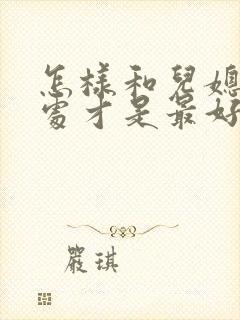 怎樣和兒媳
處才是最好
嚴琪